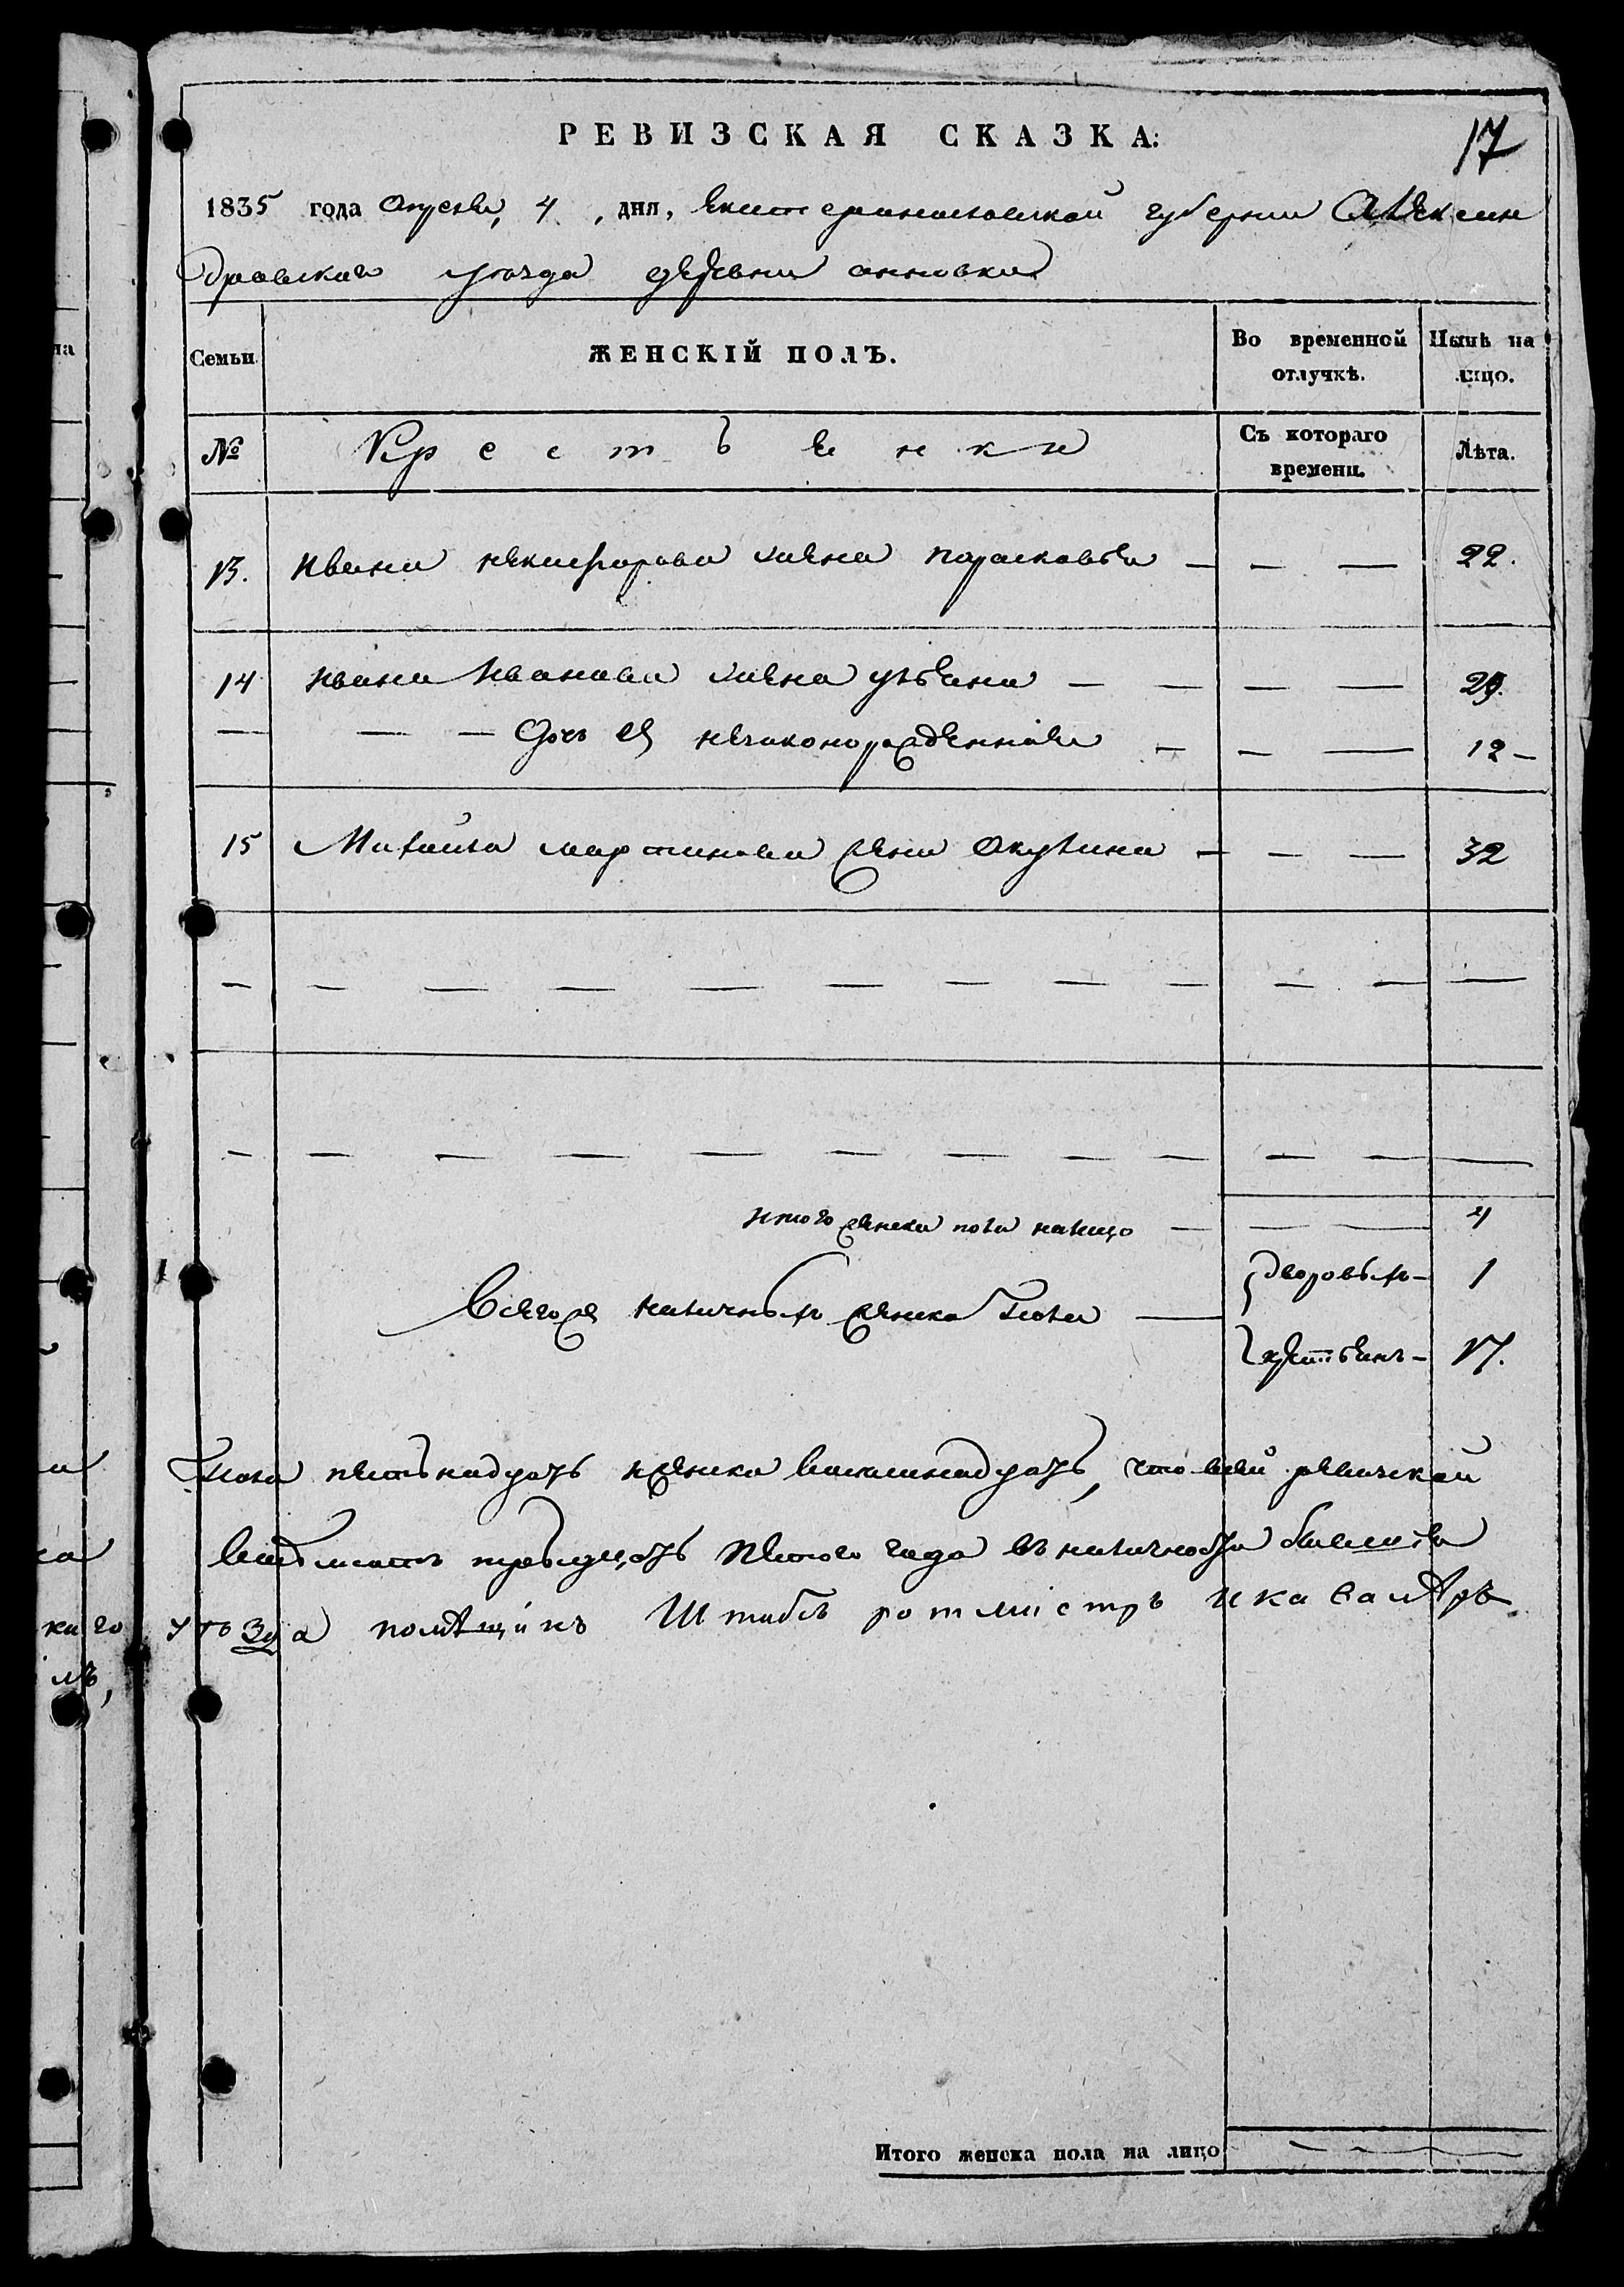 РЕВИЗСКАЯ СКАЗКА:
17
1835 года Апреля, 4, дня, Екатеринославской губернии Алексан
дровскаго уезда деревни анновки
Семьи ЖЕНСКІЙ ПОЛЪ. Во временной отлучкѣ. Нынѣ на лицо.
№ Крестьянки Съ котораго времени. Лѣта.
13. Ивана никифорова жена парасковья — — — 22.
14 Ивана Иванова жена ульяна — — — — 29.
— — — Дочь ея незаконорожденная — — — 12 —
15 Михайла мартинова жена Акулина — — — 32
— — — — — — — — — — — —
— — — — — — — — — — — —
итого женска пола налицо — — — 4
{дворовыхъ — 1
Всего же наличныхъ женска пола —
{крестьянъ — 17.
пола пятьнадцать и женска восемнадцать, что всей ревизской
тридцать пятого года въ наличности
уѣзда помѣщикъ Штабъ ротмистръ и кавалѣръ
Итого женска пола на лицо — — —
на
а
ка
каго
лъ,